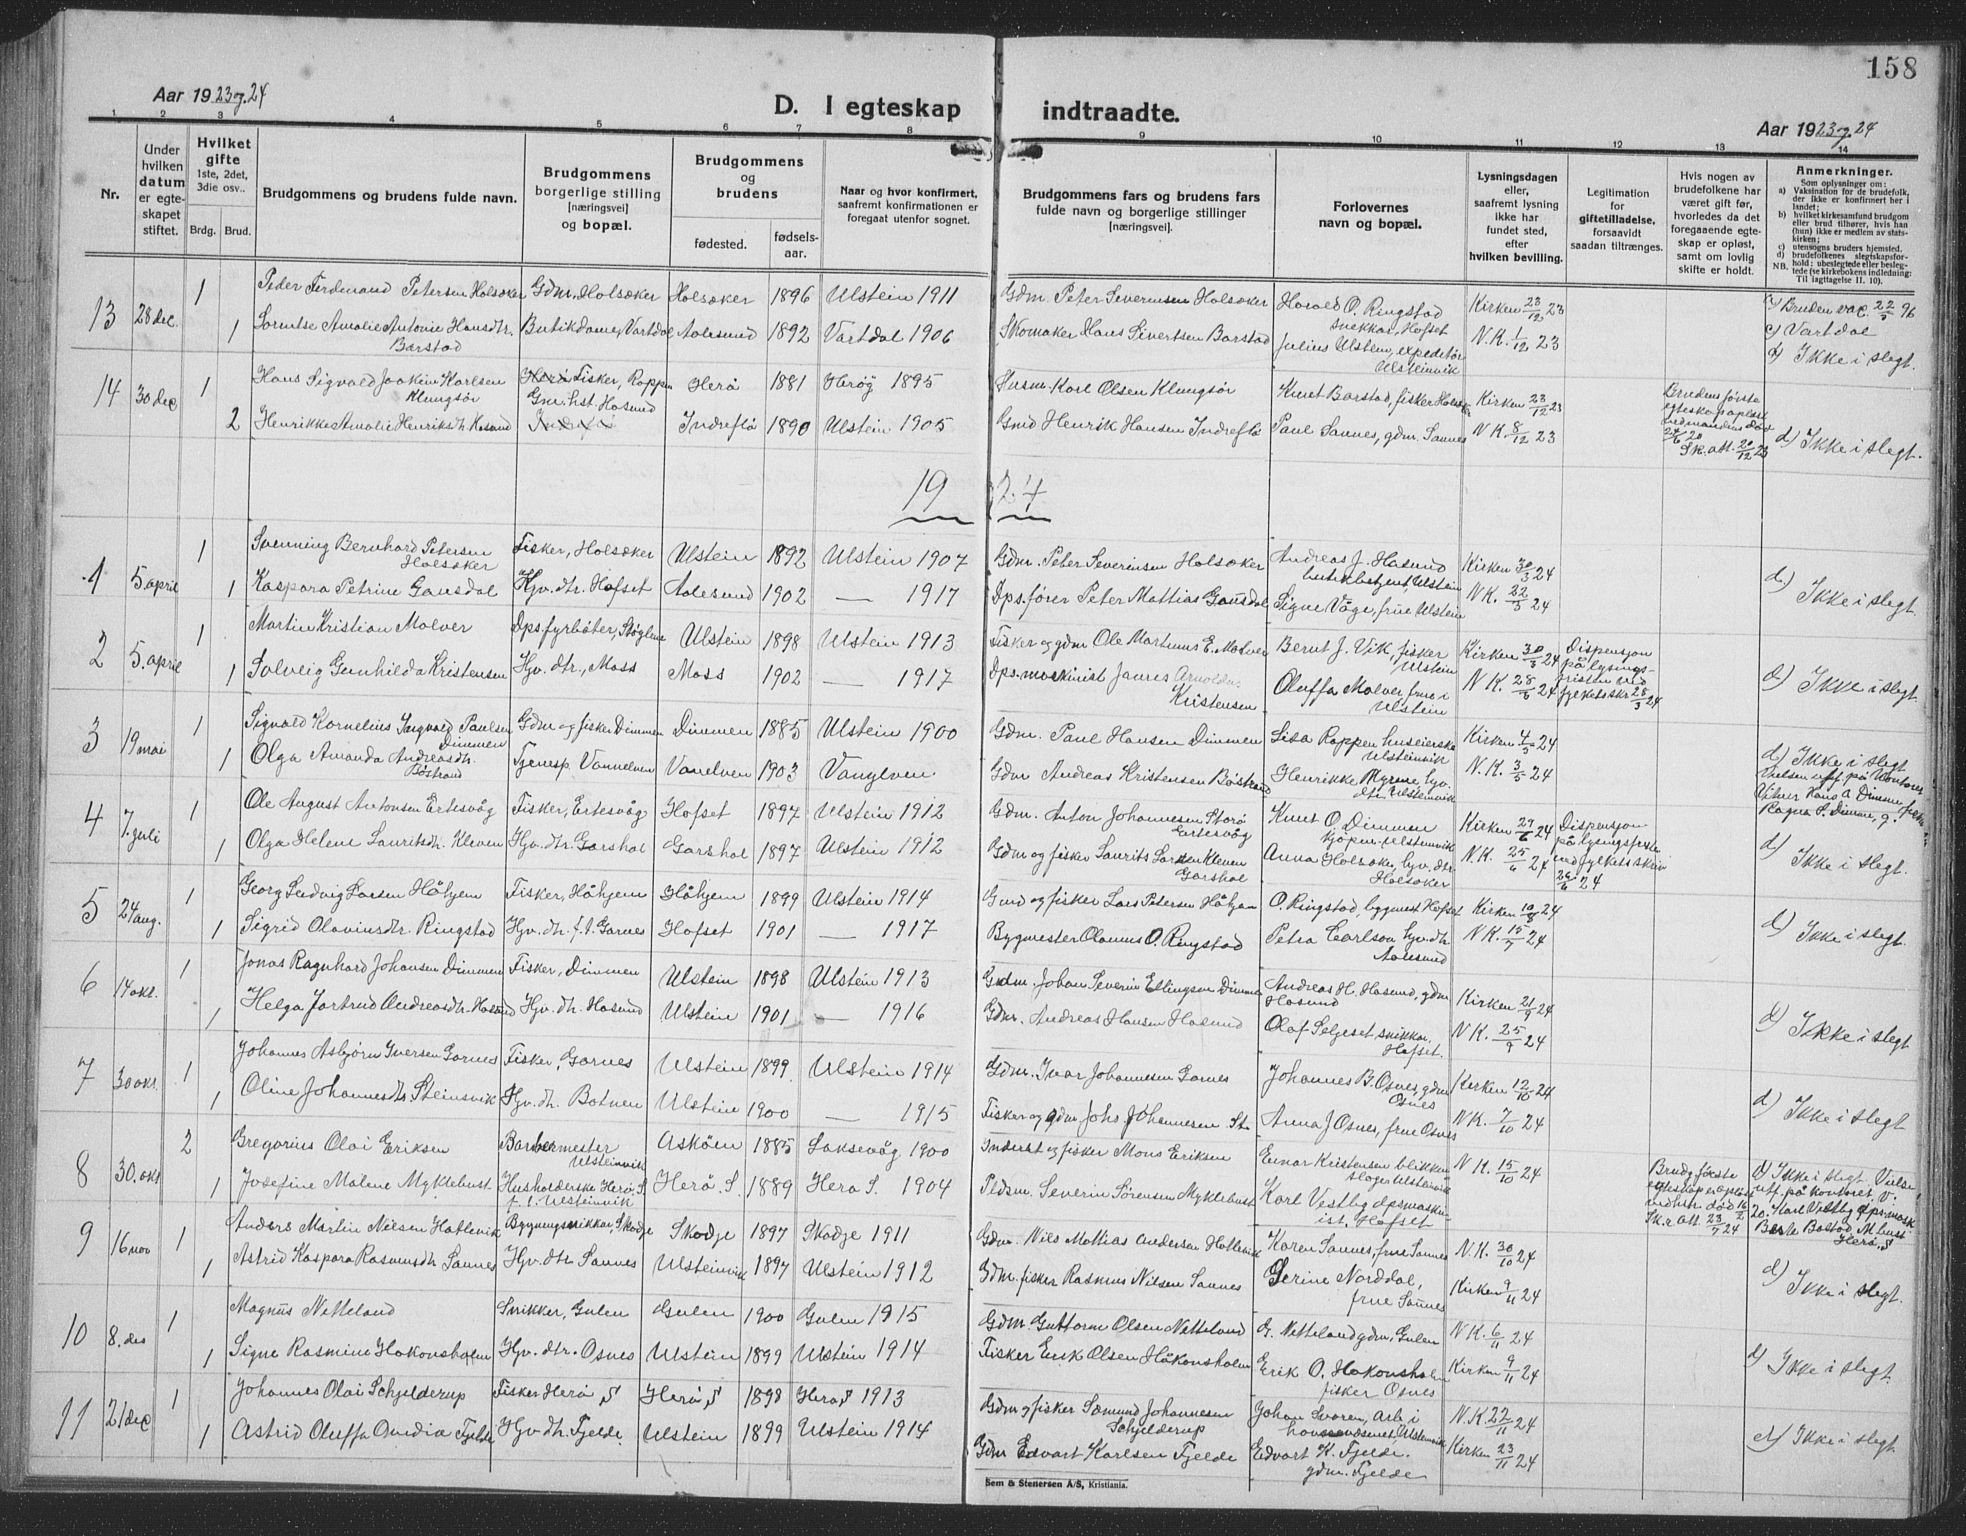 158
Aar 1923 og 24
D. I egteskap indtraadte.
Aar 1923 og 24
1 2 3 4 5 6 7 8 9 10 11 12 13 14
Nr.
Under hvilken datum er egteskapet stiftet.
Hvilket gifte 1ste, 2det, 3die osv..
Brdg. Brud.
Brudgommens og brudens fulde navn.
Brudgommens borgerlige stilling [næringsvei] og bopæl.
Brudgommens og brudens
fødested.
fødselsaar.
Naar og hvor konfirmert, saafremt konfirmationen er foregaat utenfor sognet.
Brudgommens fars og brudens fars fulde navn og borgerlige stillinger [næringsvei].
Forlovernes navn og bopæl.
Lysningsdagen eller, saafremt lysning ikke har fundet sted, efter hvilken bevilling.
Legitimation for giftetilladelse, forsaavidt saadan tiltrænges.
Hvis nogen av brudefolkene har været gift før, hvorledes da det foregaaende egteskap er opløst, samt om lovlig skifte er holdt.
Anmerkninger.
Som oplysninger om:
a) Vaksination for de brudefolk, der ikke er konfirmert her i landet;
b) hvilket kirkesamfund brudgom eller brud tilhører, hvis han (hun) ikke er medlem av statskirken;
c) utensogns bruders hjemsted.
d) brudefolkenes slegtskapsforhold: ubeslegtede eller beslegtede (se kirkebokens indledning: NB. Til lagttagelse II. 10).
13 28 dec. 1 Peder Ferdinand Petersen Holsæker Gdm, Holsæker Holsæker 1896 Ulstein 1911 Gdm. Peter Severinsen Holsæker Harald O. Ringstad snekkar, Hofset Kirken 23/12 23 a) Bruden vac. 22/5 96
1 Amalie Antonie Hansdtr. Barstad Butikdame, Vartdal Aalesund 1892 Vartdal 1906 Skomaker Hans Sivertsen Barstad Julius Ulstein, expeditør Ulsteinvik N.K. 1/12 23 c) Vartdal
d) Ikke i slegt.
14 30 dec 1 Hans Sigvald Joakim Karlsen Klungsør Fisker, Roppen Herø 1881 Herøy 1895 Husm. Karl Olsen Klungsør Knut Barstad, fisker Holsæker Kirken 23/12 23 Brudens første egteskap opløst ved mandens død 24/6 20 Sk. att. 20/12 23
2 Henrikke Amalie Henriksdtr. Hasund Gm. hst. Hasund Indreflø 1890 Ulstein 1905 Gmd Henrik Hansen Indreflø Paul Sannes, gdm. Sannes N.K. 8/12 23 d) Ikke i slegt.
19 24
1 5. april 1 Svenning Bernhard Petersen Holsæker Fisker, Holsæker Ulstein 1892 Ulstein 1907 Gdm. Peter Severinsen Holsæker Andreas J. Hasund Ulstein Kirken 30/3 24
1 Kaspara Petrine Gausdal Hjv. dtr. Hofset Aalesund 1902 — 1917 Dps. fører Peter Mattias Gausdal Signe Våge, frue Ulstein N.K. 22/3 24 d.) Ikke i slegt.
2 5. april 1 Martin Kristian Molver Dps. fyrbøter, Ulstein 1898 Ulstein 1913 Fisker og gdm Ole Martinus E. Molver Bernt J. Vik, fisker Ulstein Kirken 30/3 24 Dispensjon på lysingsfristen ved fylkesskr 28/3 24
1 Solveig Gunhilda Kristensen Hjv. dtr., Moss Moss 1902 — 1917 Dps. maskinist James Arnoldus Kristensen Oluffa Molver, frue i Ulstein N.K. 28/3 24 d) Ikke i slegt.
3 19 mai 1 Sigvald Kornelius Ingvald Paulsen Dimmen Gdm og fisker Dimmen Dimmen 1885 Ulstein 1900 Gdm. Paul Hansen Dimmen Lisa Roppen huseierske Ulsteinvik Kirken 4/5 24
1 Olga Amanda Andreasdtr. Bøstrand Tjenesp. Vannelven Vanelven 1903 Vanylven Gdm Andreas Kristensen Bøstrand Henrikke Myrene, hjv. dtr. Ulsteinvik N.K. 3/5 24 d) Ikke i slegt
4 7. juli 1 Ole August Antonsen Ertesvåg Fisker, Ertesvåg Hofset 1897 Ulstein 1912 Gdm. Anton Johannesen Storø Ertesvåg Knut O. Dimmen kjøpm. Ulsteinvik Kirken 29/6 24 Dispensjon på lysingsfriste ved fylkets skriv 26/6 24
1 Olga Helene Lauritsdtr. Kleven Hjv. dtr. Garshol Garshol 1897 Ulstein 1912 Gdm og fisker Laurits Larsen Kleven Garshol Anna Holsæker, hjv. dtr. Holsæker N.K. 25/6 24 d) Ikke i slegt.
5 24 aug. 1 Georg Ludvig Larsen Håhjem Fisker, Håhjem Håhjem 1899 Ulstein 1914 Gmd og fisker Lars Petersen Håhjem O. Ringstad, bygmest Hofset Kirken 10/8 24
1 Sigrid Olavinsdtr. Ringstad Hjv. dtr. f. t. Garnes Hofset 1901 — 1917 Bygmester Olavius O. Ringstad Petra Carlson hjv. dtr. Aalesund N.K. 15/7 24 d) Ikke i slegt.
6 14 okt. 1 Jonas Ragnhard Johansen Dimmen Fisker, Dimmen Ulstein 1898 Ulstein 1913 Gdm. Johan Severin Ellingsen Dimmen Andreas H. Hasund, gdm Hasund Kirken 21/9 24
1 Helga Jortrud Andreasdtr. Hasund Hjv. dtr. Hasund Ulstein 1901 — 1916 Gdm. Andreas Hansen Hasund Olaf Seljeset snikkar, Hofset. N.K. 25/9 24 d) Ikke i slegt
7 30 okt. 1 Johannes Asbjørn Iversen Garnes Fisker, Garnes Ulstein 1899 Ulstein 1914 Gdm. Ivar Johannesen Garnes Johannes B. Osnes, gdm Osnes Kirken 12/10 24
1 Oline Johannesdtr Steinsvik Hjv. dtr. Botnen Ulstein 1900 — 1915 Fisker og gdm Johs Johannesen St. Anna J Osnes, frue Osnes N.K. 7/10 24 d) Ikke i slegt
8 30. okt 2 Gregorius Olai Eriksen Barbermester Ulsteinvik Askøen 1885 Laksevåg 1900 Inderst og fisker Mons Eriksen Einar Kristensen blikkenslager Ulsteinvik N.K. 15/10 24 Brudg. første egteskap er opløst ved hstr. død 16/2 20. Sk. att. 23/9 24
1 Josefine Malene Myklebust Husholderske Herø, S. f. t. Ulsteinvik Herø. S. 1889 Herø S. 1904 Pldsm. Severin Sørensen Myklebust Karl Vestby dpsmaskinist, Hofset d) Ikke i slegt. Vielse utf. på kontoret, v. Karl Vestby dps. mask
9 16 nov 1 Anders Martin Nilsen Hatlevik Bygningssnikkar, Skodje Skodje 1897 Skodje 1911 Gdm. Nils Mattias Andersen Hatlevik Karen Sannes, frue Sannes N.K. 30/10 24
1 Astrid Kaspara Rasmusdtr Sannes Hjv. dtr Sannes Ulsteinvik 1897 Ulstein 1912 Gdm. fisker Rasmus Nilsen Sannes Gerine Norddal, frue Sannes Kirken 9/11 24 d) Ikke i slegt.
10 8. des 1 Magnus Netteland Snikker, Gulen Gulen 1900 Gulen 1915 Gdm. Guttorm Olsen Netteland G. Netteland gdm. Gulen N.K. 6/11 24
1 Signe Rasmine Håkonsholm Hjv. dtr. Osnes Ulstein 1899 Ulstein 1914 Fisker Erik Olsen Håkonsholm Erik O. Håkonsholm fisker Osnes Kirken 9/11 24 d) Ikke i slegt.
11 21 dec 1 Johannes Olai Schjelderup Fisker Herø S Herø, S 1898 Herø, S 1913 Gdm og fisker Sæmund Johannesen Schjelderup Johan Svoren, Arb. i Ulsteinvik N.K. 22/11 24
1 Astrid Oluffa Ovidia Fjelde Hjv. dtr. Fjelde. Ulstein 1899 Ulstein 1914 Gdm Edvart Karlsen Fjelde Edvart K. Fjelde. gdm. Fjelde Kirken 23/11 24 d) Ikke i slegt.
Sem & Stenersen A/S, Kristiania.